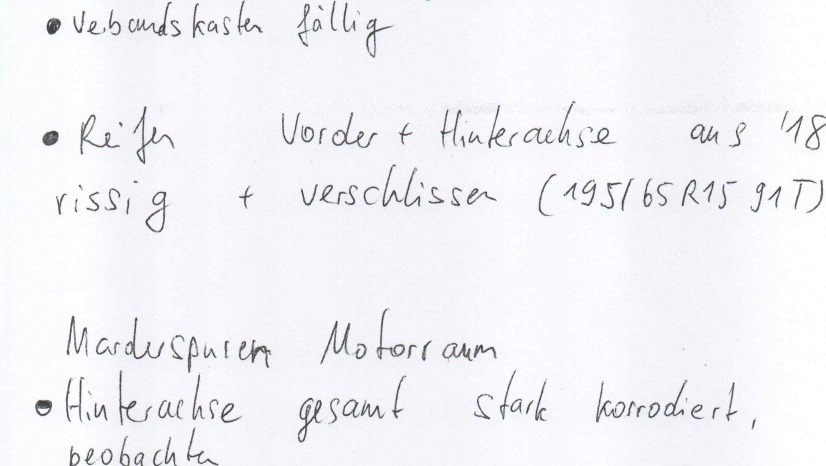 • Verbandskasten fällig
• Reifen Vorder + Hinterachse aus '18
rissig + verschlissen (195/65 R15 91T)
Marderspuren Motorraum
• Hinterachse gesamt stark korrodiert,
beobachten